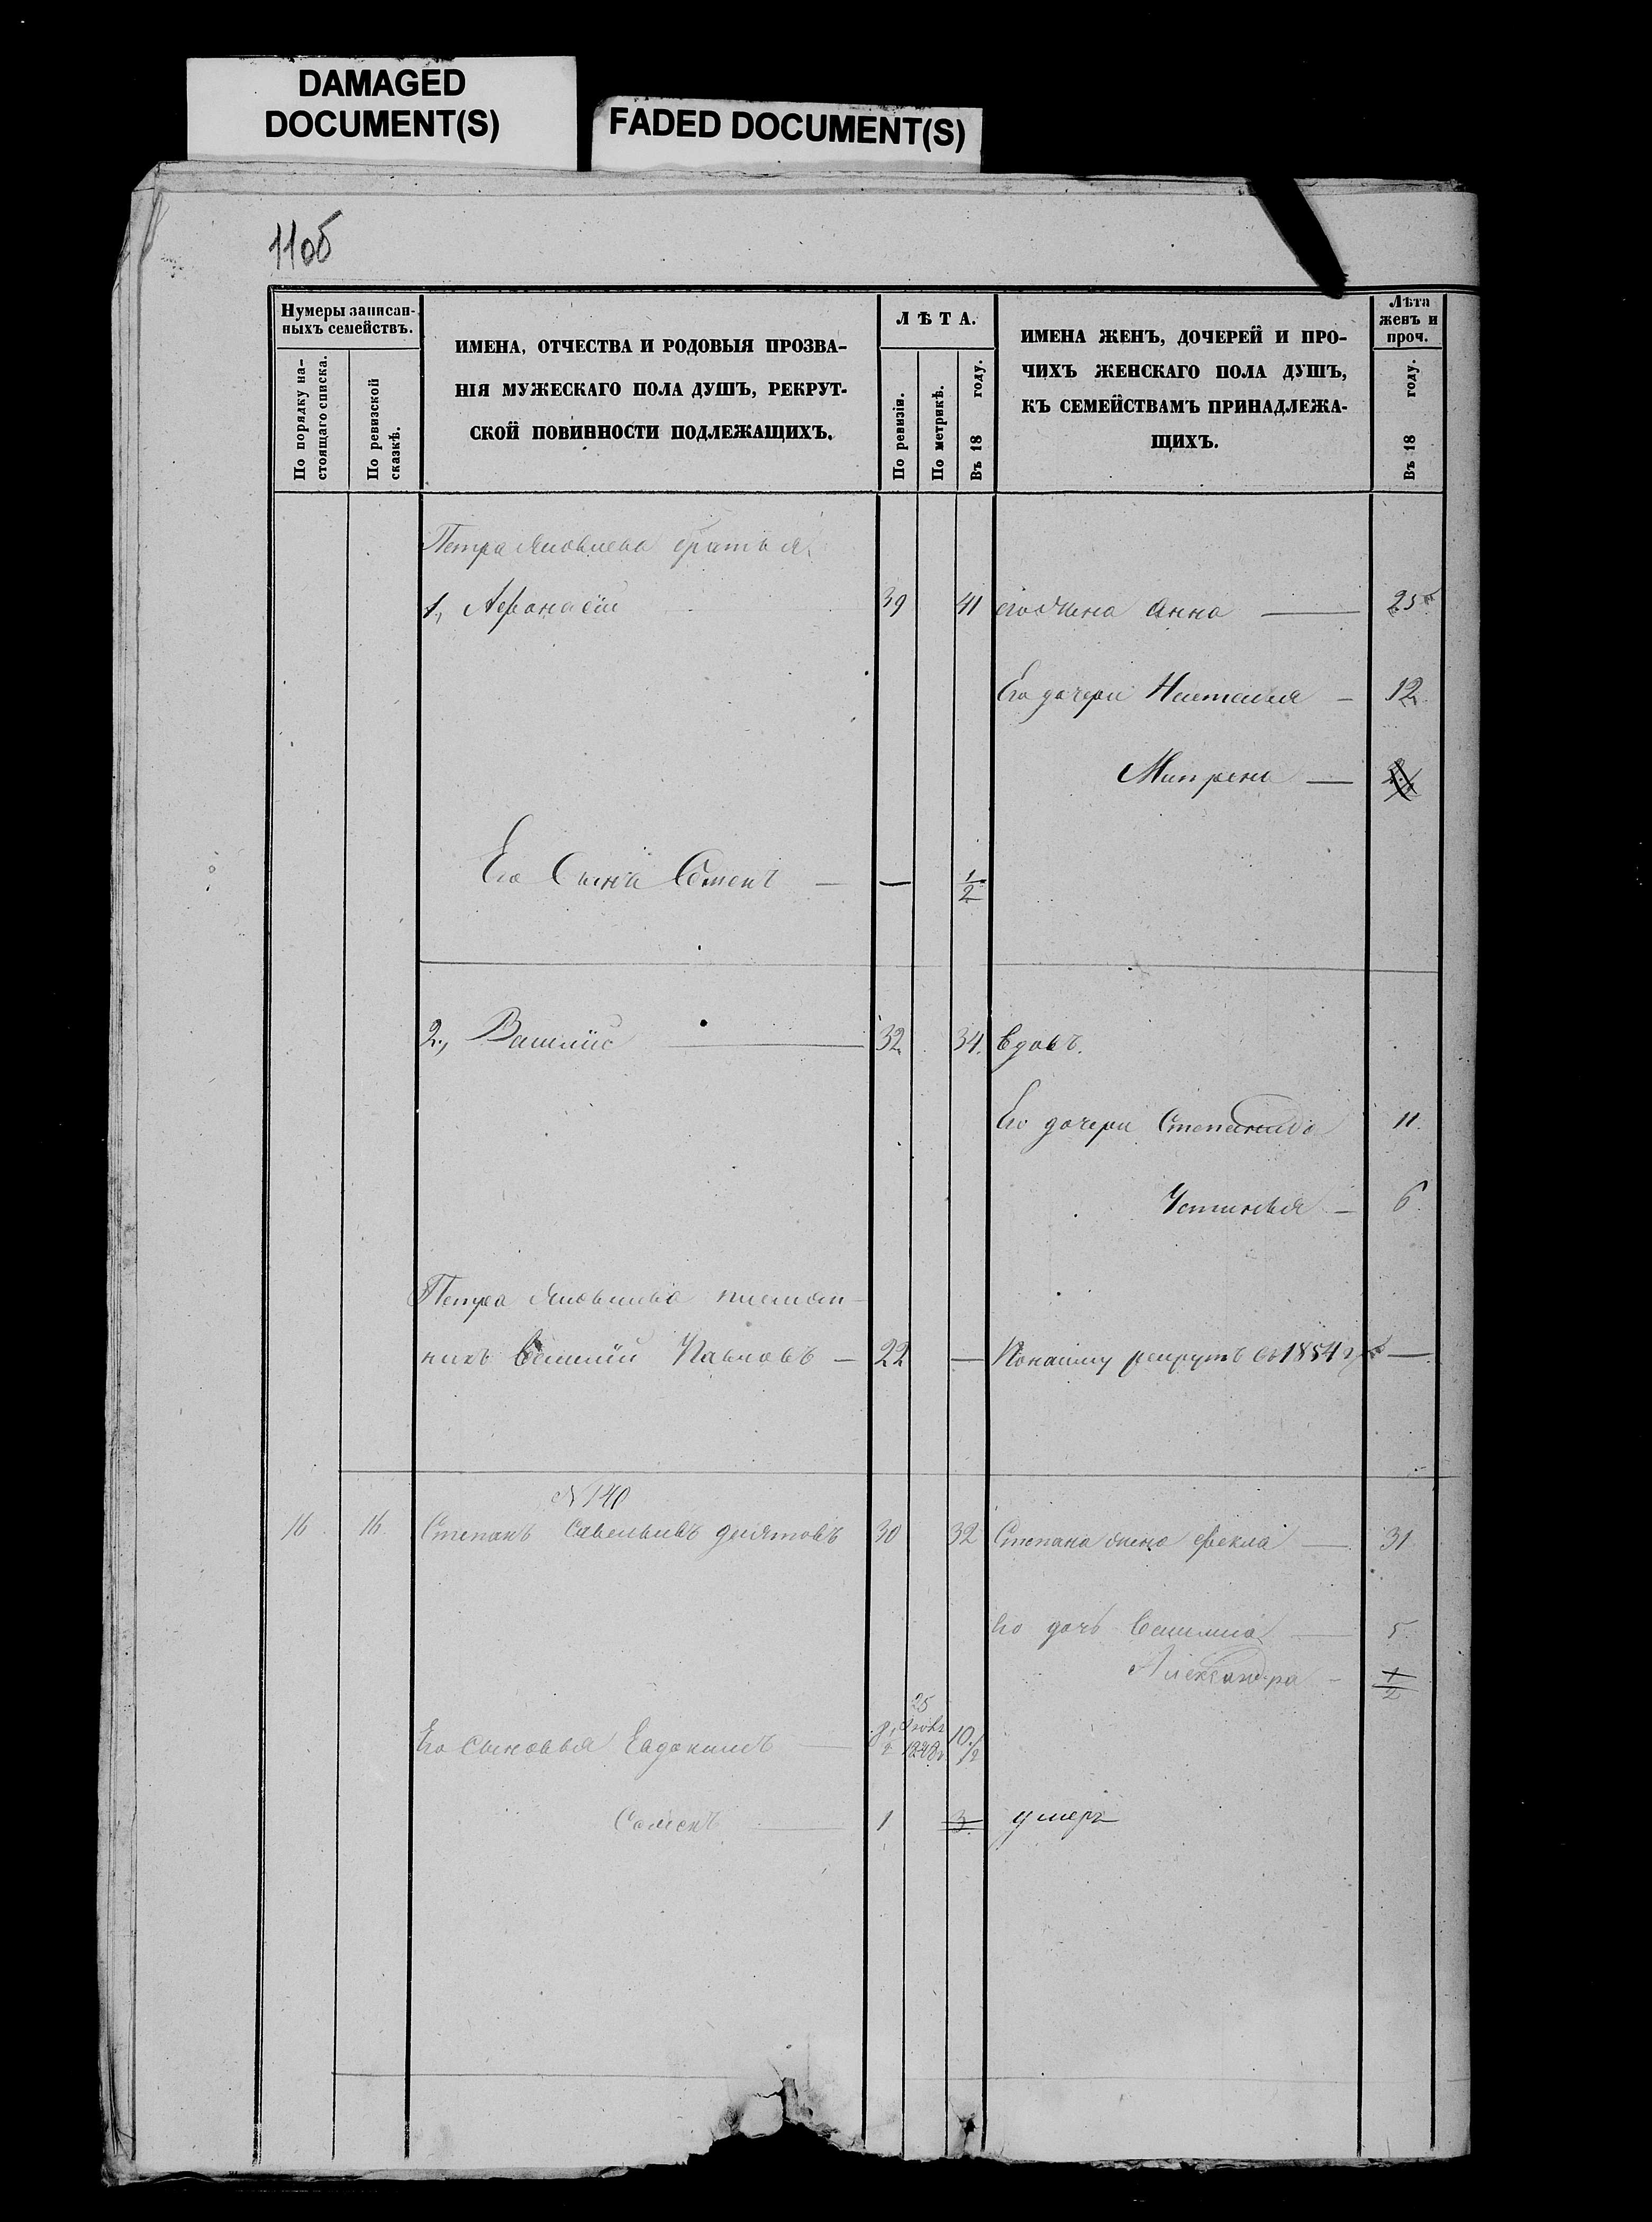 DAMAGED
DOCUMENT(S)
FADED DOCUMENT(S)
11об
Нумеры записан-
ныхъ семействъ.
По порядку на-
стоящаго списка.
По ревизской
сказкѣ.
ИМЕНА, ОТЧЕСТВА И РОДОВЫЯ ПРОЗВА-
НІЯ МУЖЕСКАГО ПОЛА ДУШЪ, РЕКРУТ-
СКОЙ ПОВИННОСТИ ПОДЛЕЖАЩИХЪ.
ЛѢТА.
По ревизіи.
По метрикѣ.
Въ 18 году.
ИМЕНА ЖЕНЪ, ДОЧЕРЕЙ И ПРО-
ЧИХЪ ЖЕНСКАГО ПОЛА ДУШЪ,
КЪ СЕМЕЙСТВАМЪ ПРИНАДЛЕЖА-
ЩИХЪ.
Лѣта
женъ и
проч.
Въ 18 году.
Петра Яковлева братья
1, Афонасій 39 41 его жена Анна — 25
Его дочери Настасья — 12
Матрена —
Его Сынъ Семенъ — — 1/2
2., Василій — 32. 34. вдовъ.
Его дочери Степанида 11.
Устинья — 6.
Петра Яковлева племян-
никъ Василій Павловъ — 22 — По найму рекрутъ въ 1854 г —
N 140
16. 16. Степанъ Савельевъ Девятовъ 30 32 Степана жена Фекла — 31
Его дочь Василиса — 5.
Александра - 1/2
Его сыновья Евдокимъ — 8 1/2 25 1848 10 1/2
Семенъ — 1 3 умеръ